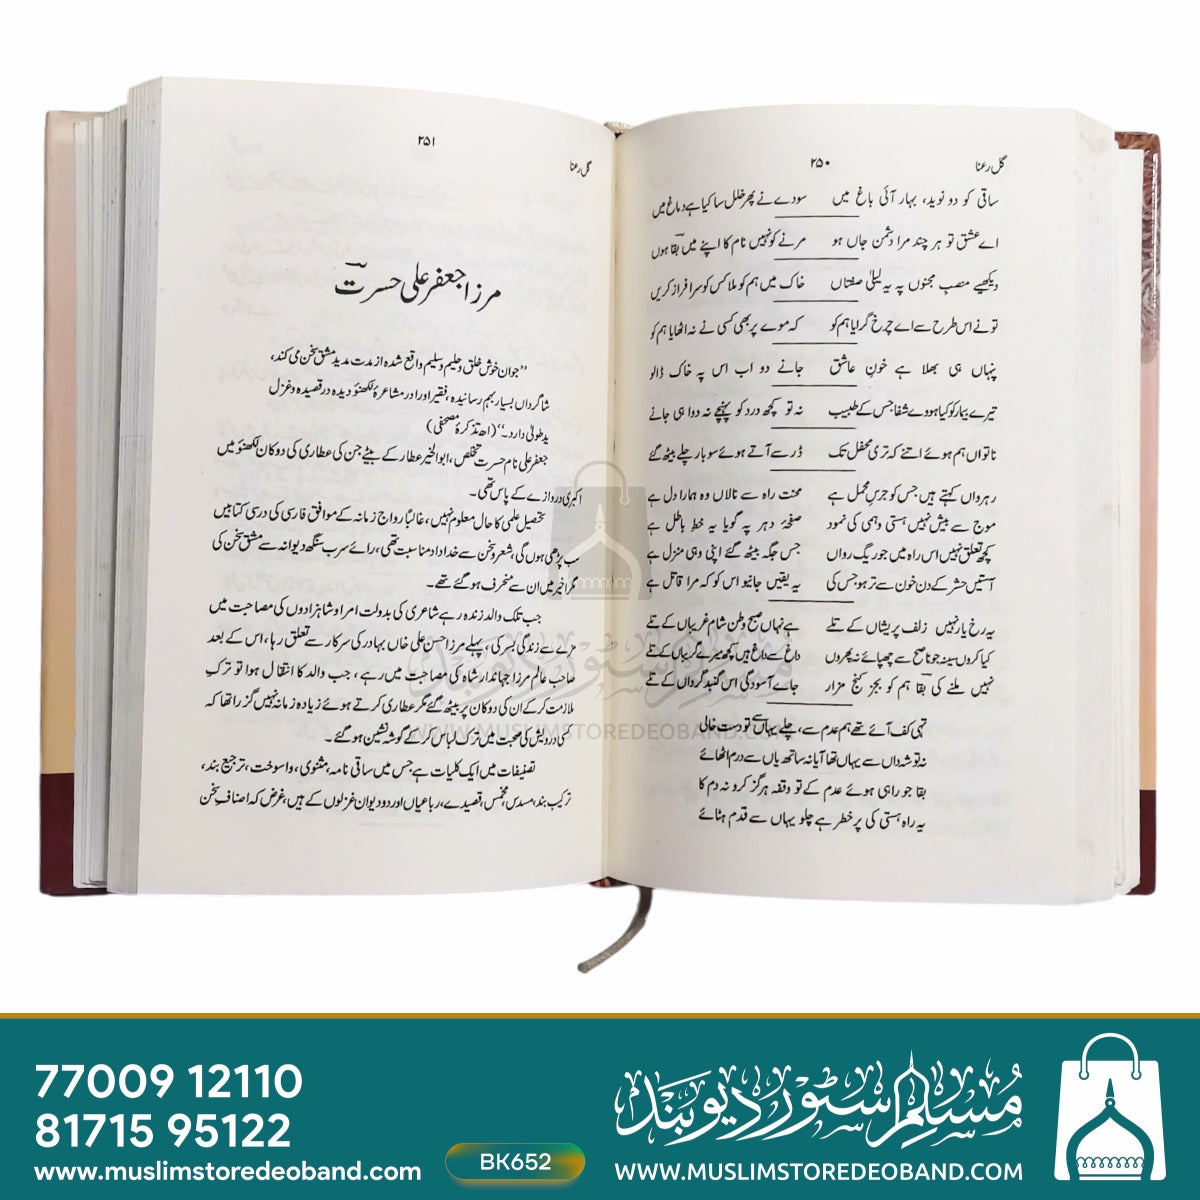 ۲۵۰
گل رعنا
ساقی کو دو نوید، بہار آئی باغ میں سودے نے پھر خلل سا کیا ہے دماغ میں
اے عشق تو ہر چند مرا دشمن جاں ہو مرنے کو نہیں نام کا اپنے میں بقا ہوں
دیکھیے منصبِ مجنوں پہ یہ لیلیٰ صفتاں خاک میں ہم کو ملا کس کو سرافراز کریں
تو نے اس طرح سے اے چرخ گرایا ہم کو کہ موے پر بھی کسی نے نہ اٹھایا ہم کو
پنہاں ہی بھلا ہے خونِ عاشق جانے دو اب اس پہ خاک ڈالو
تیرے بیمار کو کیا ہووے شفا جس کے طبیب نہ تو کچھ درد کو پہنچے نہ دوا ہی جانے
ناتواں ہم ہوئے اتنے کہ تری محفل تک ڈر سے آتے ہوئے سو بار چلے بیٹھ گئے
رہرواں کہتے ہیں جس کو جرسِ محمل ہے محنت راہ سے نالاں وہ ہمارا دل ہے
موج سے بیش نہیں ہستی وہمی کی نمود صفحۂ دہر پہ گویا یہ خطِ باطل ہے
کچھ تعلق نہیں اس راہ میں جوں ریگ رواں جس جگہ بیٹھ گئے اپنی وہی منزل ہے
آستیں حشر کے دن خون سے تر ہو جس کی یہ یقیں جانیو اس کو کہ مرا قاتل ہے
یہ رخ یار نہیں زلف پریشاں کے تلے ہے نہاں صبح وطن شام غریباں کے تلے
کیا کروں سینہ جو ناصح سے چھپائے نہ پھروں داغ سے داغ ہیں کچھ میرے گریباں کے تلے
نہیں ملنے کی بقا ہم کو بجز کنج مزار جاے آسودگی اس گنبد گرداں کے تلے
تہی کف آئے تھے ہم عدم سے، چلے یہاں سے تو دست خالی
نہ توشہ داں سے یہاں تھا آیا نہ ساتھ یاں سے درم اٹھائے
بقا جو راہی ہوئے عدم کے تو وقفہ ہرگز کرو نہ دم کا
یہ راہ ہستی کی پرخطر ہے چلو یہاں سے قدم ہٹائے
۲۵۱
گل رعنا
مرزا جعفر علی حسرت
”جوان خوش خلق و حلیم و سلیم واقع شدہ از مدت مدید مشق سخن می کند،
شاگرداں بسیار بہم رسانیدہ، فقیر او را در مشاعرۂ لکھنؤ دیدہ در قصیدہ و غزل
ید طولیٰ دارد۔“ (اھ تذکرۂ مصحفی)
جعفر علی نام حسرت تخلص، ابوالخیر عطار کے بیٹے جن کی عطاری کی دوکان لکھنؤ میں
اکبری دروازے کے پاس تھی۔
تحصیل علمی کا حال معلوم نہیں، غالبًا رواج زمانہ کے موافق فارسی کی درسی کتابیں
سب پڑھی ہوں گی، شعر و سخن سے خداداد مناسبت تھی، رائے سرب سنگھ دیوانہ سے مشق سخن کی
مگر اخیر میں ان سے منحرف ہو گئے تھے۔
جب تلک والد زندہ رہے شاعری کی بدولت امرا و شاہزادوں کی مصاحبت میں
مزے سے زندگی بسر کی، پہلے مرزا حسن علی خاں بہادر کی سرکار سے تعلق رہا، اس کے بعد
صاحب عالم مرزا جہاندار شاہ کی مصاحبت میں رہے، جب والد کا انتقال ہوا تو ترک
ملازمت کر کے ان کی دوکان پر بیٹھ گئے مگر عطاری کرتے ہوئے زیادہ زمانہ نہیں گزرا تھا کہ
کسی درویش کی صحبت میں ترک لباس کر کے گوشہ نشین ہو گئے۔
تصنیفات میں ایک کلیات ہے، جس میں ساقی نامہ، مثنوی، واسوخت، ترجیع بند،
ترکیب بند، مسدس مخمس، قصیدے، رباعیاں اور دو دیوان غزلوں کے ہیں، غرض کہ اصناف سخن
مسلم سٹور دیوبند
WWW.MUSLIMSTOREDEOBAND.COM
77009 12110
81715 95122
www.muslimstoredeoband.com
BK652
مسلم سٹور دیوبند
www.MUSLIMSTOREDEOBAND.COM